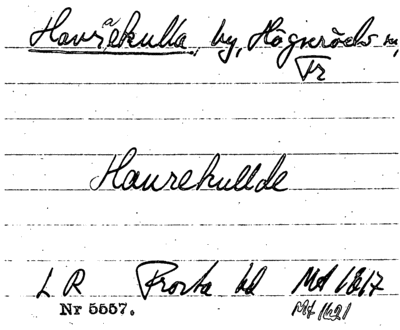 Havrekulla, by, Högseröds sn,
Fr
Haurekullde
L R Frosta hd Mt 1617
Nr 5557. Mt 1621